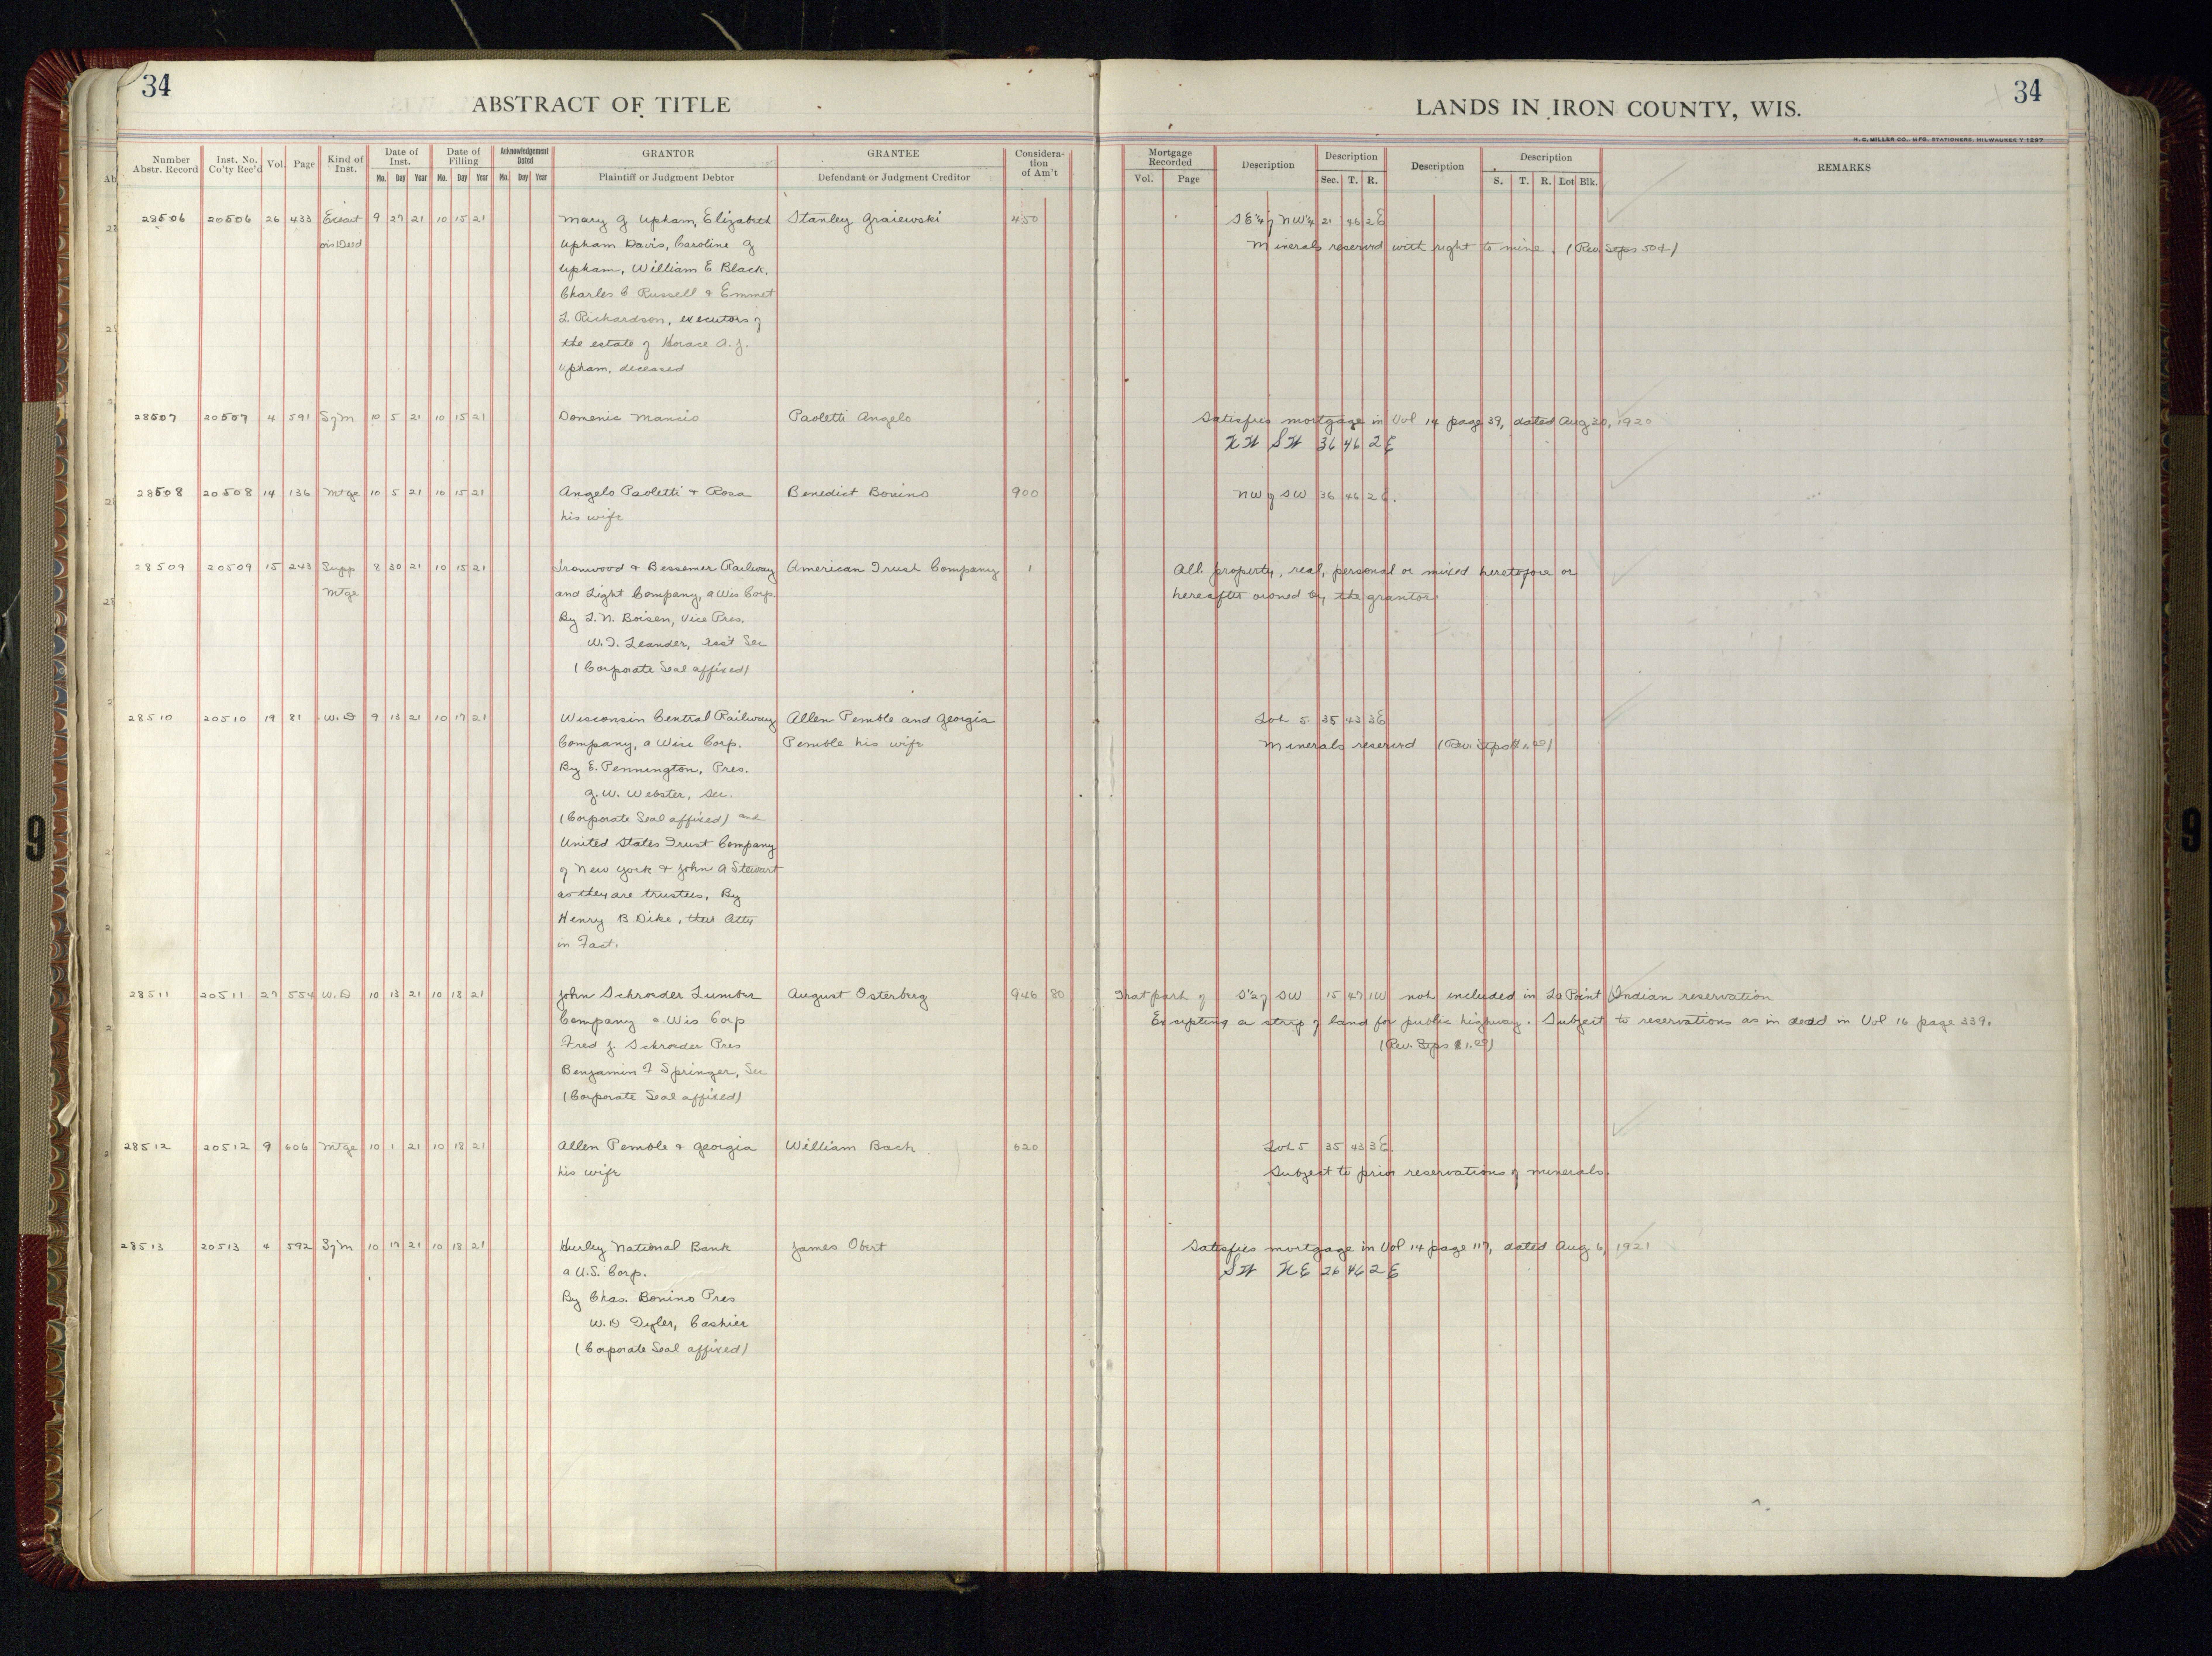 34
ABSTRACT OF TITLE
LANDS IN IRON COUNTY, WIS.
34
H. C. MILLER CO., MFG. STATIONERS, MILWAUKEE
Number Abstr. Record | Inst. No. Co'ty Rec'd | Vol. | Page | Kind of Inst. | Date of Inst. Mo. Day Year | Date of Filling Mo. Day Year | Acknowledgement Dated Mo. Day Year | GRANTOR Plaintiff or Judgment Debtor | GRANTEE Defendant or Judgment Creditor | Considera-tion of Am't | Mortgage Recorded Vol. Page | Description | Description Sec. T. R. | Description | Description S. T. R. Lot Blk. | REMARKS
28506 20506 26 433 9 27 21 10 15 21 Mary J Upham, Elizabeth Stanley Graiewski 450 SE¼ of NW¼ 21 46 2E
Deed Upham Davis, Caroline G Minerals reserved with right to mine. (Rev. Stps 50¢)
Upham, William E Black,
Charles C Russell & Emmet
L. Richardson, executors of
the estate of Horace A. J.
Upham, deceased
28507 20507 4 591 SofM 10 5 21 10 15 21 Domenic Mancio Paoletti Angelo Satisfies mortgage in Vol 14 page 39, dated Aug 20, 1920
NW SW 36 46 2E
28508 20508 14 136 Mtge 10 5 21 10 15 21 Angelo Paoletti & Rosa Benedict Bonino 900 NW of SW 36 46 2E.
his wife
28509 20509 15 243 Supp 8 30 21 10 15 21 Ironwood & Bessemer Railway American Trust Company 1 All property, real, personal or mixed heretofore or
Mtge and Light Company, a Wis Corp. hereafter owned by the grantor
By L. N. Boisen, Vice Pres.
W. T. Leander, Ass't Sec
(Corporate Seal affixed)
28510 20510 19 81 W.D 9 13 21 10 17 21 Wisconsin Central Railway Allen Pemble and Georgia Lot 5 35 43 3E
Company, a Wisc Corp. Pemble his wife Minerals reserved (Rev. Stps
By E. Pennington, Pres.
G. W. Webster, Sec.
(Corporate Seal affixed) and
United States Trust Company
of New York & John A Stewart
as they are trustees, By
Henry B Dike, their Atty
in Fact.
28511 20511 27 554 W.D 10 13 21 10 18 21 John Schroeder Lumber August Osterberg 946 80 That part of S½ of SW 15 47 1W not included in La Point Indian reservation
Company a Wis Corp Excepting a strip of land for public highway. Subject to reservations as in deed in Vol 16 page 339.
Fred J. Schroeder Pres (Rev. Stps $1.00)
Benjamin F Springer, Sec
(Corporate Seal affixed)
28512 20512 9 606 Mtge 10 1 21 10 18 21 Allen Pemble & Georgia William Bach 620 Lot 5 35 43 3E.
his wife Subject to prior reservations of minerals.
28513 20513 4 592 SofM 10 17 21 10 18 21 Hurley National Bank James Obert Satisfies mortgage in Vol 14 page 117, dated Aug 6, 1921
a U.S. Corp. SW NE 26 46 2E
By Chas. Bonino Pres
W. D Tyler, Cashier
(Corporate Seal affixed)
9
9